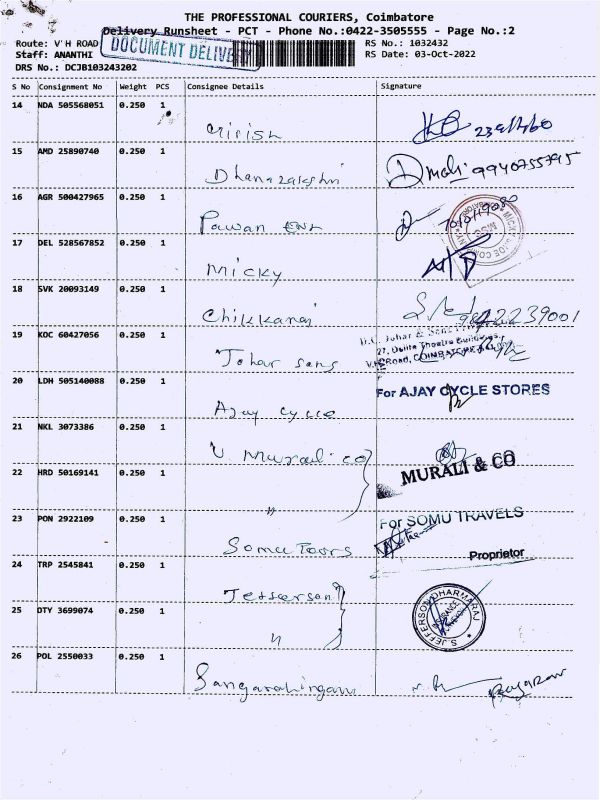 THE PROFESSIONAL COURIERS, Coimbatore
Delivery Runsheet - PCT - Phone No.:0422-3505555 - Page No.:2
Route: V'H ROAD
RS No.: 1032432
DOCUMENT DELIVE
Staff: ANANTHI
RS Date: 03-Oct-2022
DRS No.: DCJB103243202
S No Consignment No Weight PCS Consignee Details Signature
14 NDA 505568051 0.250 1
Girish
15 AMD 25890740 0.250 1
Dhanazalakshmi
Dmali 9940755795
16 AGR 500427965 0.250 1
Pawan Ent
17 DEL 528567852 0.250 1
Micky
18 SVK 20093149 0.250 1
Chikkanai
9842239001
19 KOC 60427056 0.250 1
Johar sons
H.C. Johar & Sons
27, Delite Theatre Buildings,
V.H. Road, COIMBATORE
20 LDH 505140088 0.250 1
Ajay cycle
For AJAY CYCLE STORES
21 NKL 3073386 0.250 1
V Murali co
MURALI & CO
22 HRD 50169141 0.250 1
"
23 PON 2922109 0.250 1
Somu Toors
For SOMU TRAVELS
Proprietor
24 TRP 2545841 0.250 1
Jefferson
S. JEFFERSON DHARMARAJ
INSURANCE
25 OTY 3699074 0.250 1
"
26 POL 2550033 0.250 1
Sangaralingam